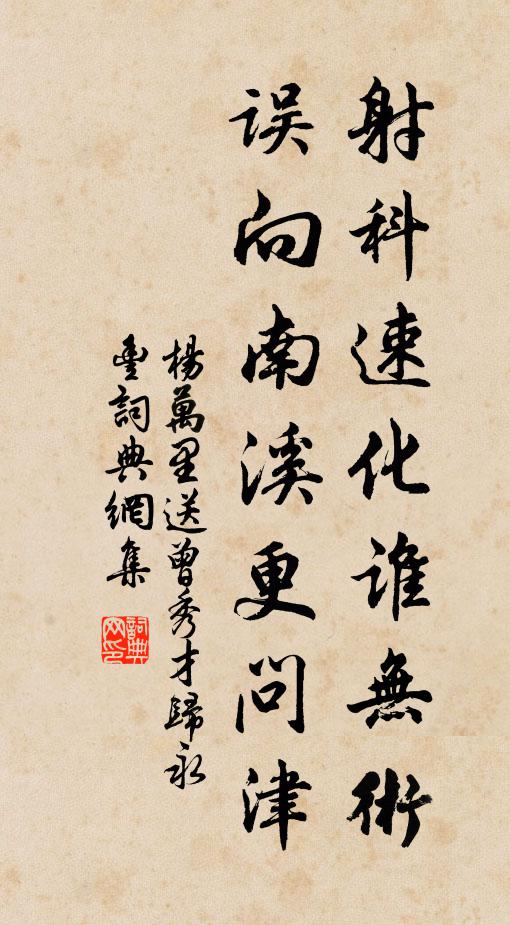 射科速化誰無術
誤向南溪更問津
楊萬里送曾秀才歸永
豐詞典網集
詞典
网印